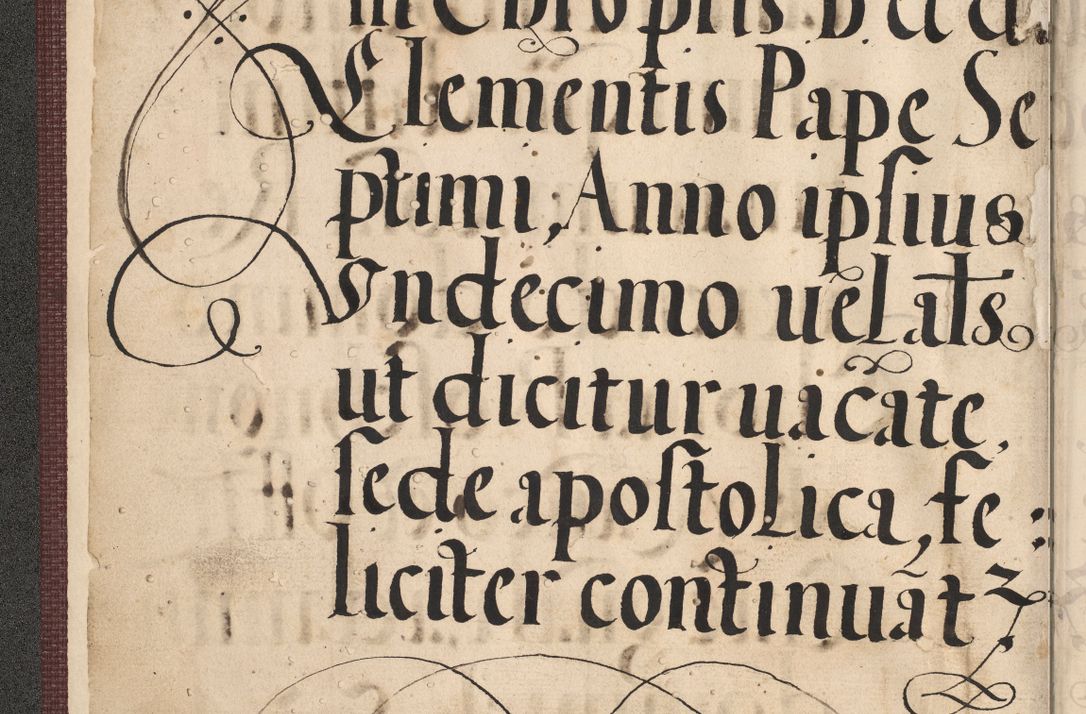 in Chro ptis D. cl cl.
Clementis Pape Se
ptimi, Anno ipsius
Vndecimo uel ats
ut dicitur uacāte,
sede apostolica, fe:
liciter continuāt